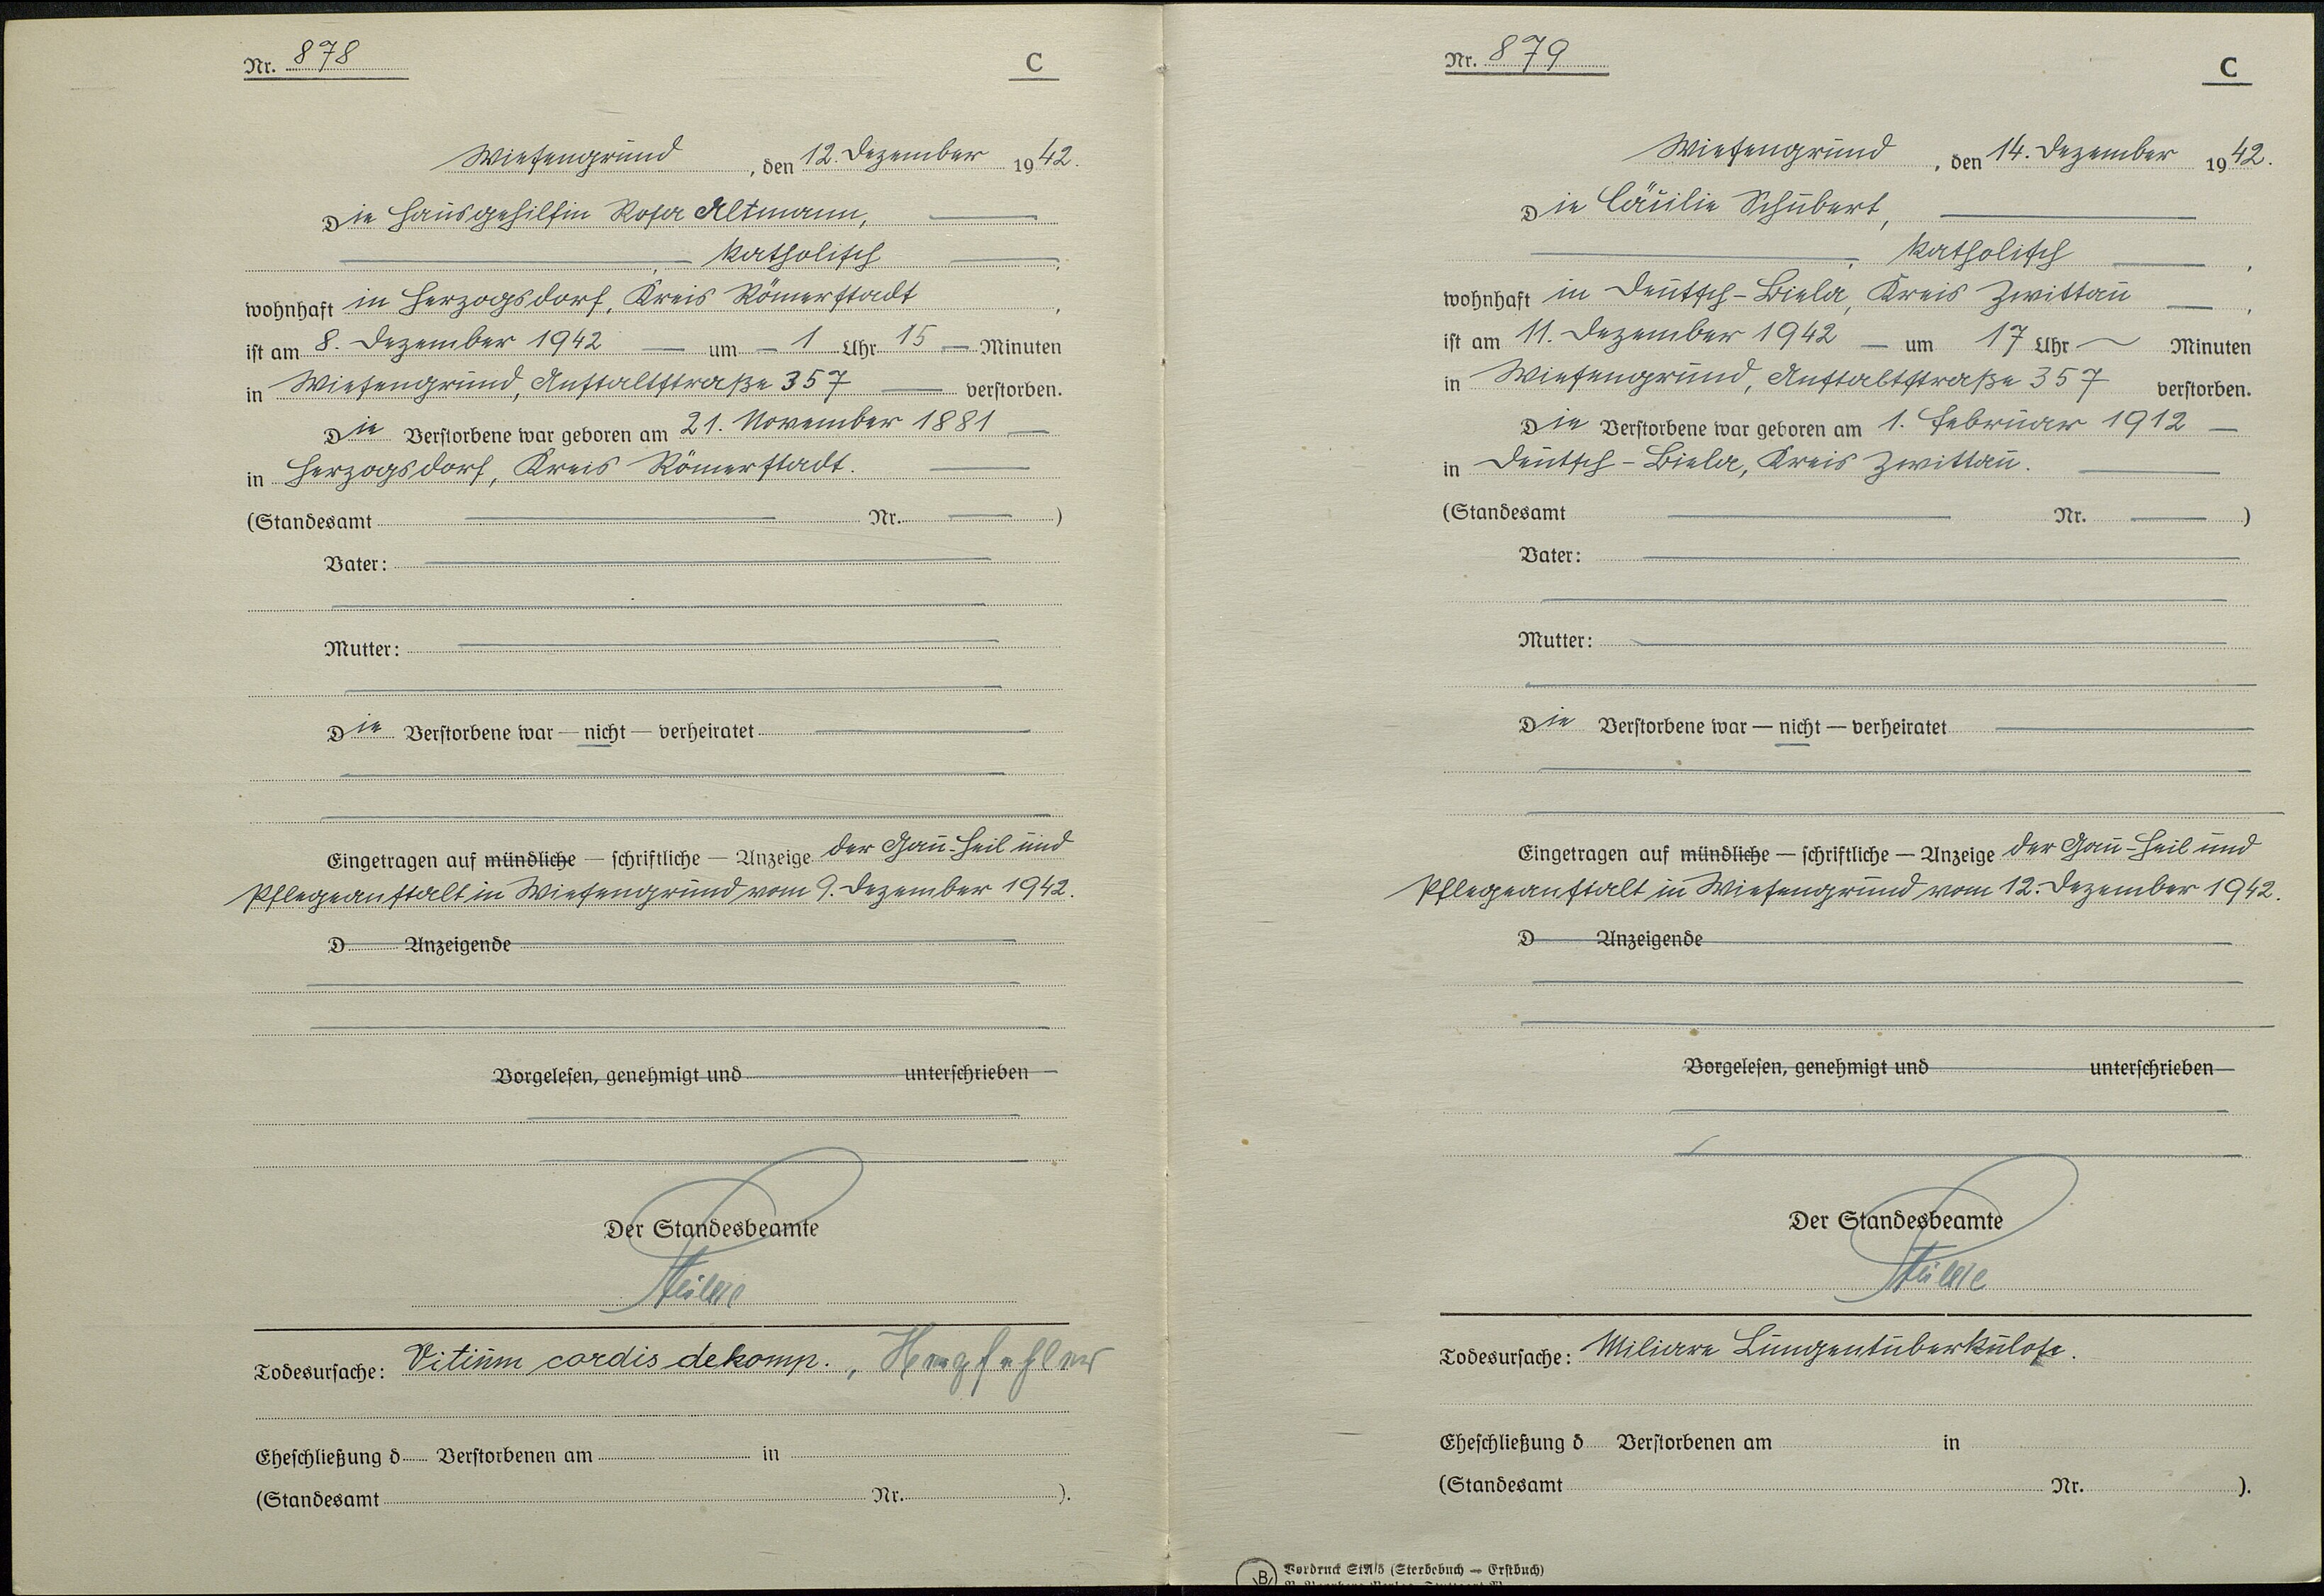 Nr. 878
C
Wiesengrund, den 12. Dezember 1942.
Die Hausgehilfin Rosa Altmann,
, katholisch,
wohnhaft in Herzogsdorf, Kreis Römerstadt,
ist am 8. Dezember 1942 um 1 Uhr 15 Minuten
in Wiesengrund, Anstaltstraße 357 verstorben.
Die Verstorbene war geboren am 21. November 1881
in Herzogsdorf, Kreis Römerstadt.
(Standesamt Nr. )
Vater:
Mutter:
Die Verstorbene war — nicht — verheiratet
Eingetragen auf mündliche — schriftliche — Anzeige der Gau-Heil und
Pflegeanstalt in Wiesengrund vom 9. Dezember 1942.
D Anzeigende
Vorgelesen, genehmigt und unterschrieben
Der Standesbeamte
Todesursache: Vitium cordis dekomp., Herzfehler
Eheschließung d Verstorbenen am in
(Standesamt Nr. ).
Nr. 879
C
Wiesengrund, den 14. Dezember 1942.
Die Cäcilie Schubert,
, katholisch,
wohnhaft in Deutsch-Biela, Kreis Zwittau,
ist am 11. Dezember 1942 um 17 Uhr Minuten
in Wiesengrund, Anstaltstraße 357 verstorben.
Die Verstorbene war geboren am 1. Februar 1912
in Deutsch-Biela, Kreis Zwittau.
(Standesamt Nr. )
Vater:
Mutter:
Die Verstorbene war — nicht — verheiratet
Eingetragen auf mündliche — schriftliche — Anzeige der Gau-Heil und
Pflegeanstalt in Wiesengrund vom 12. Dezember 1942.
D Anzeigende
Vorgelesen, genehmigt und unterschrieben
Der Standesbeamte
Todesursache: Miliare Lungentuberkulose.
Eheschließung d Verstorbenen am in
(Standesamt Nr. ).
B Vordruck (Sterbebuch — Erstbuch)